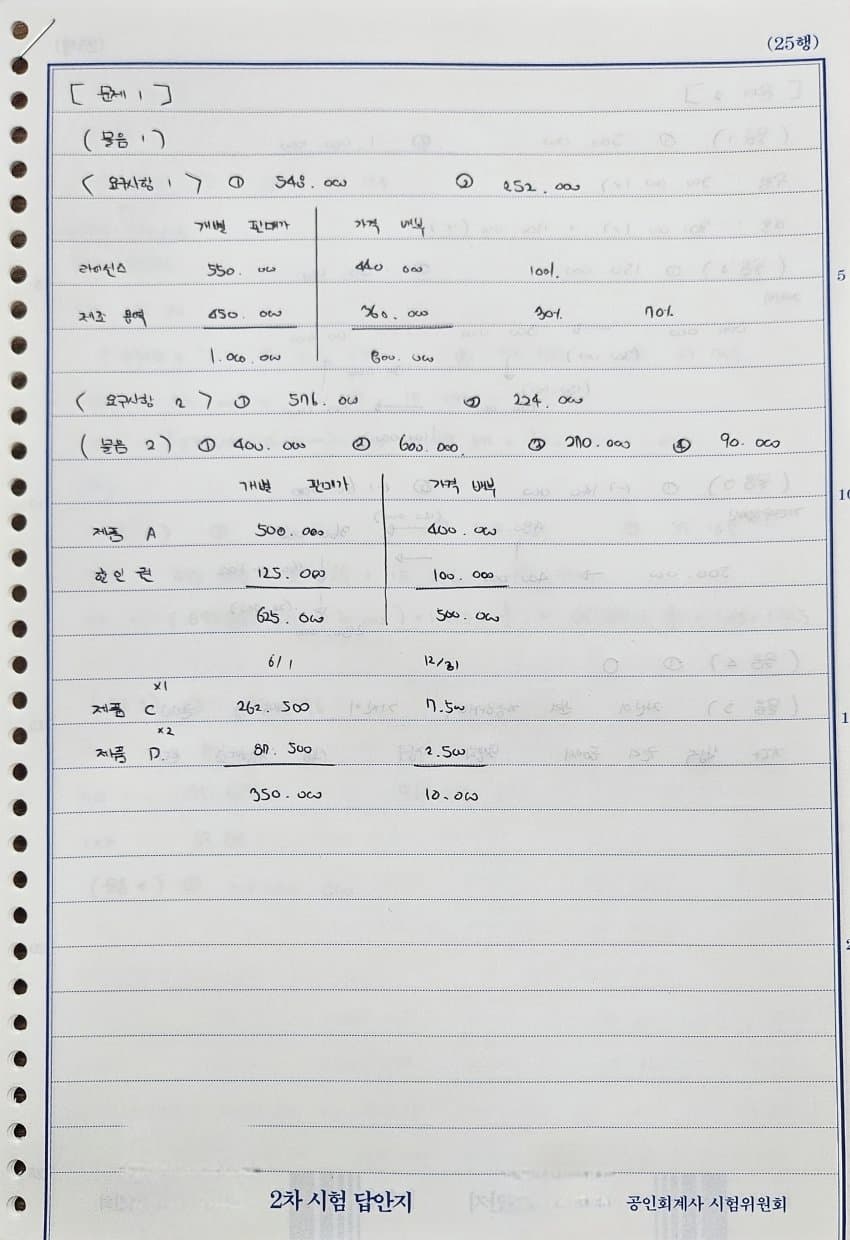 (25행)
[ 문제 1 ]
( 물음 1 )
< 요구사항 1 > ① 548.000 ② 252.000
개별 판매가 가격 배부
라이선스 550.000 440 000 100%
제조 용역 450.000 360.000 30% 70%
1.000.000 800.000
< 요구사항 2 > ① 576.000 ② 224.000
( 물음 2 ) ① 400.000 ② 600.000. ③ 270.000 ④ 90.000
개별 판매가 가격 배부
제품 A 500.000 400.000
할인권 125.000 100.000
625.000 500.000
6/1 12/31
제품 C ×1 262.500 7.500
제품 D. ×2 87.500 2.500
350.000 10.000
5
10
1
2
2차 시험 답안지
공인회계사 시험위원회